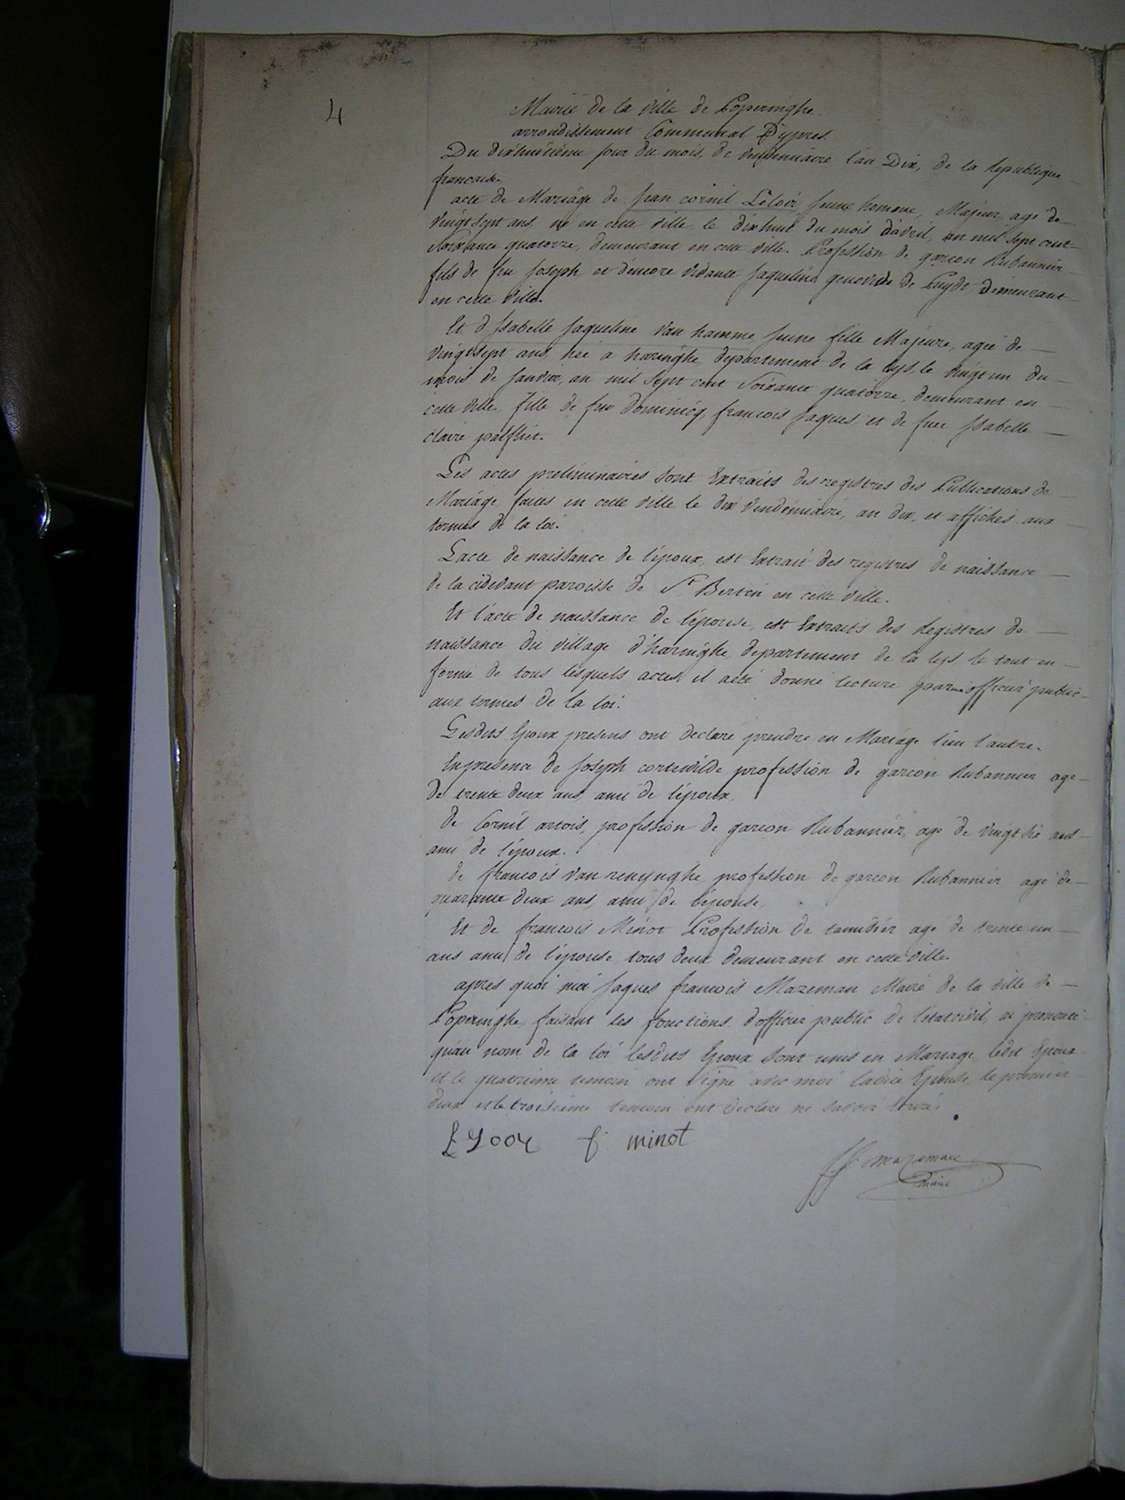 4
Mairie de la Ville de Poperinghe
arrondissement Communal D'ypres
Du dixhuitieme jour du mois de Vendemiaire l'an Dix, de la Republique
francaise.
acte de Mariage de Jean cornil Leloir, Jeune homme, Majeur, agé de
vingtsept ans, né en cette ville, le dixhuit du mois d'avril, an mil sept cent
soixante quatorze, demeurant en cette ville. Profession de garçon Rubannier
fils de feu Joseph et d'encore vivante Jaqueline genoveve de Puydt demeurant
en cette Ville.
Et d'Isabelle Jaqueline Van hamme Jeune fille Majeure, agée de
vingtsept ans née a haringhe departement de la Lys, le vingt un du
mois de Janvier, an mil sept cent Soixante quatorze, demeurant en
cette Ville, fille de feu dominicq francois Jaques et de feue Isabelle
claire
Les actes preliminaires sont Extraits des registres des Publications de
Mariage faites en cette ville le dix Vendemiaire, an dix, et affichés aux
termes de la loi.
L'acte de naissance de l'époux, est Extrait des registres de naissance
de la cidevant paroisse de St Bertin en cette Ville.
Et l'acte de naissance de l'épouse, est Extraits des Registres de
naissance du village d'haringhe departement de la lys, le tout en
forme de tous lesquels actes, il a été donné lecture par officier public
aux termes de la loi.
Lesdits Epoux presens ont declaré prendre en Mariage l'un l'autre.
En presence de Joseph cortewilde profession de garcon Rubannier agé
de trente deux ans, ami de l'époux,
de Cornil artois, profession de garcon Rubannier, agé de vingt six ans
ami de l'époux.
de francois Van renynghe profession de garcon Rubannier agé de
quarante deux ans, ami de l'épouse,
Et de francois Minot Profession de agé de trente un
ans ami de l'épouse tous deux demeurant en cette Ville.
apres quoi moi Jaques francois Mazeman Maire de la ville de
Poperinghe, faisant les fonctions d'officier public de l'etat civil, ai prononcé
qu'au nom de la loi lesdits Epoux sont unis en Mariage, ledit Epoux
et le quatrieme temoin ont signé avec moi ladite Epouse, le premier
deux et le troisieme temoin ont declaré ne savoir
f minot
Mazeman
maire